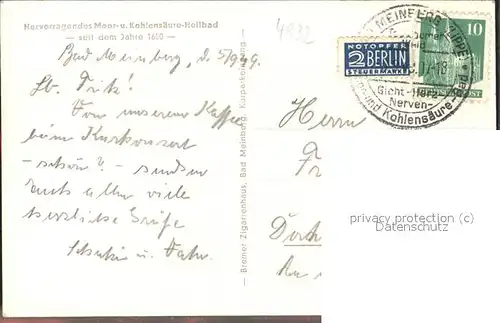 Hervorragendes Moor- u. Kohlensäure-Heilbad
— seit dem Jahre 1680 —
4932
Bad Meinberg, d. 5/9 49.
Lb. Fritz!
Von unserem Kaffee
beim Kurkonzert
- schön? - senden
Euch allen viele
herzliche Grüße
u.
Breiner Zigarrenhaus, Bad Meinberg, Kurparkeingang
NOTOPFER
2 BERLIN
STEUERMARKE
10
MEINBERG (LIPPE)
Gicht-Herz-
Nerven-
und Kohlensäure-
Herrn
privacy protection (c)
Datenschutz